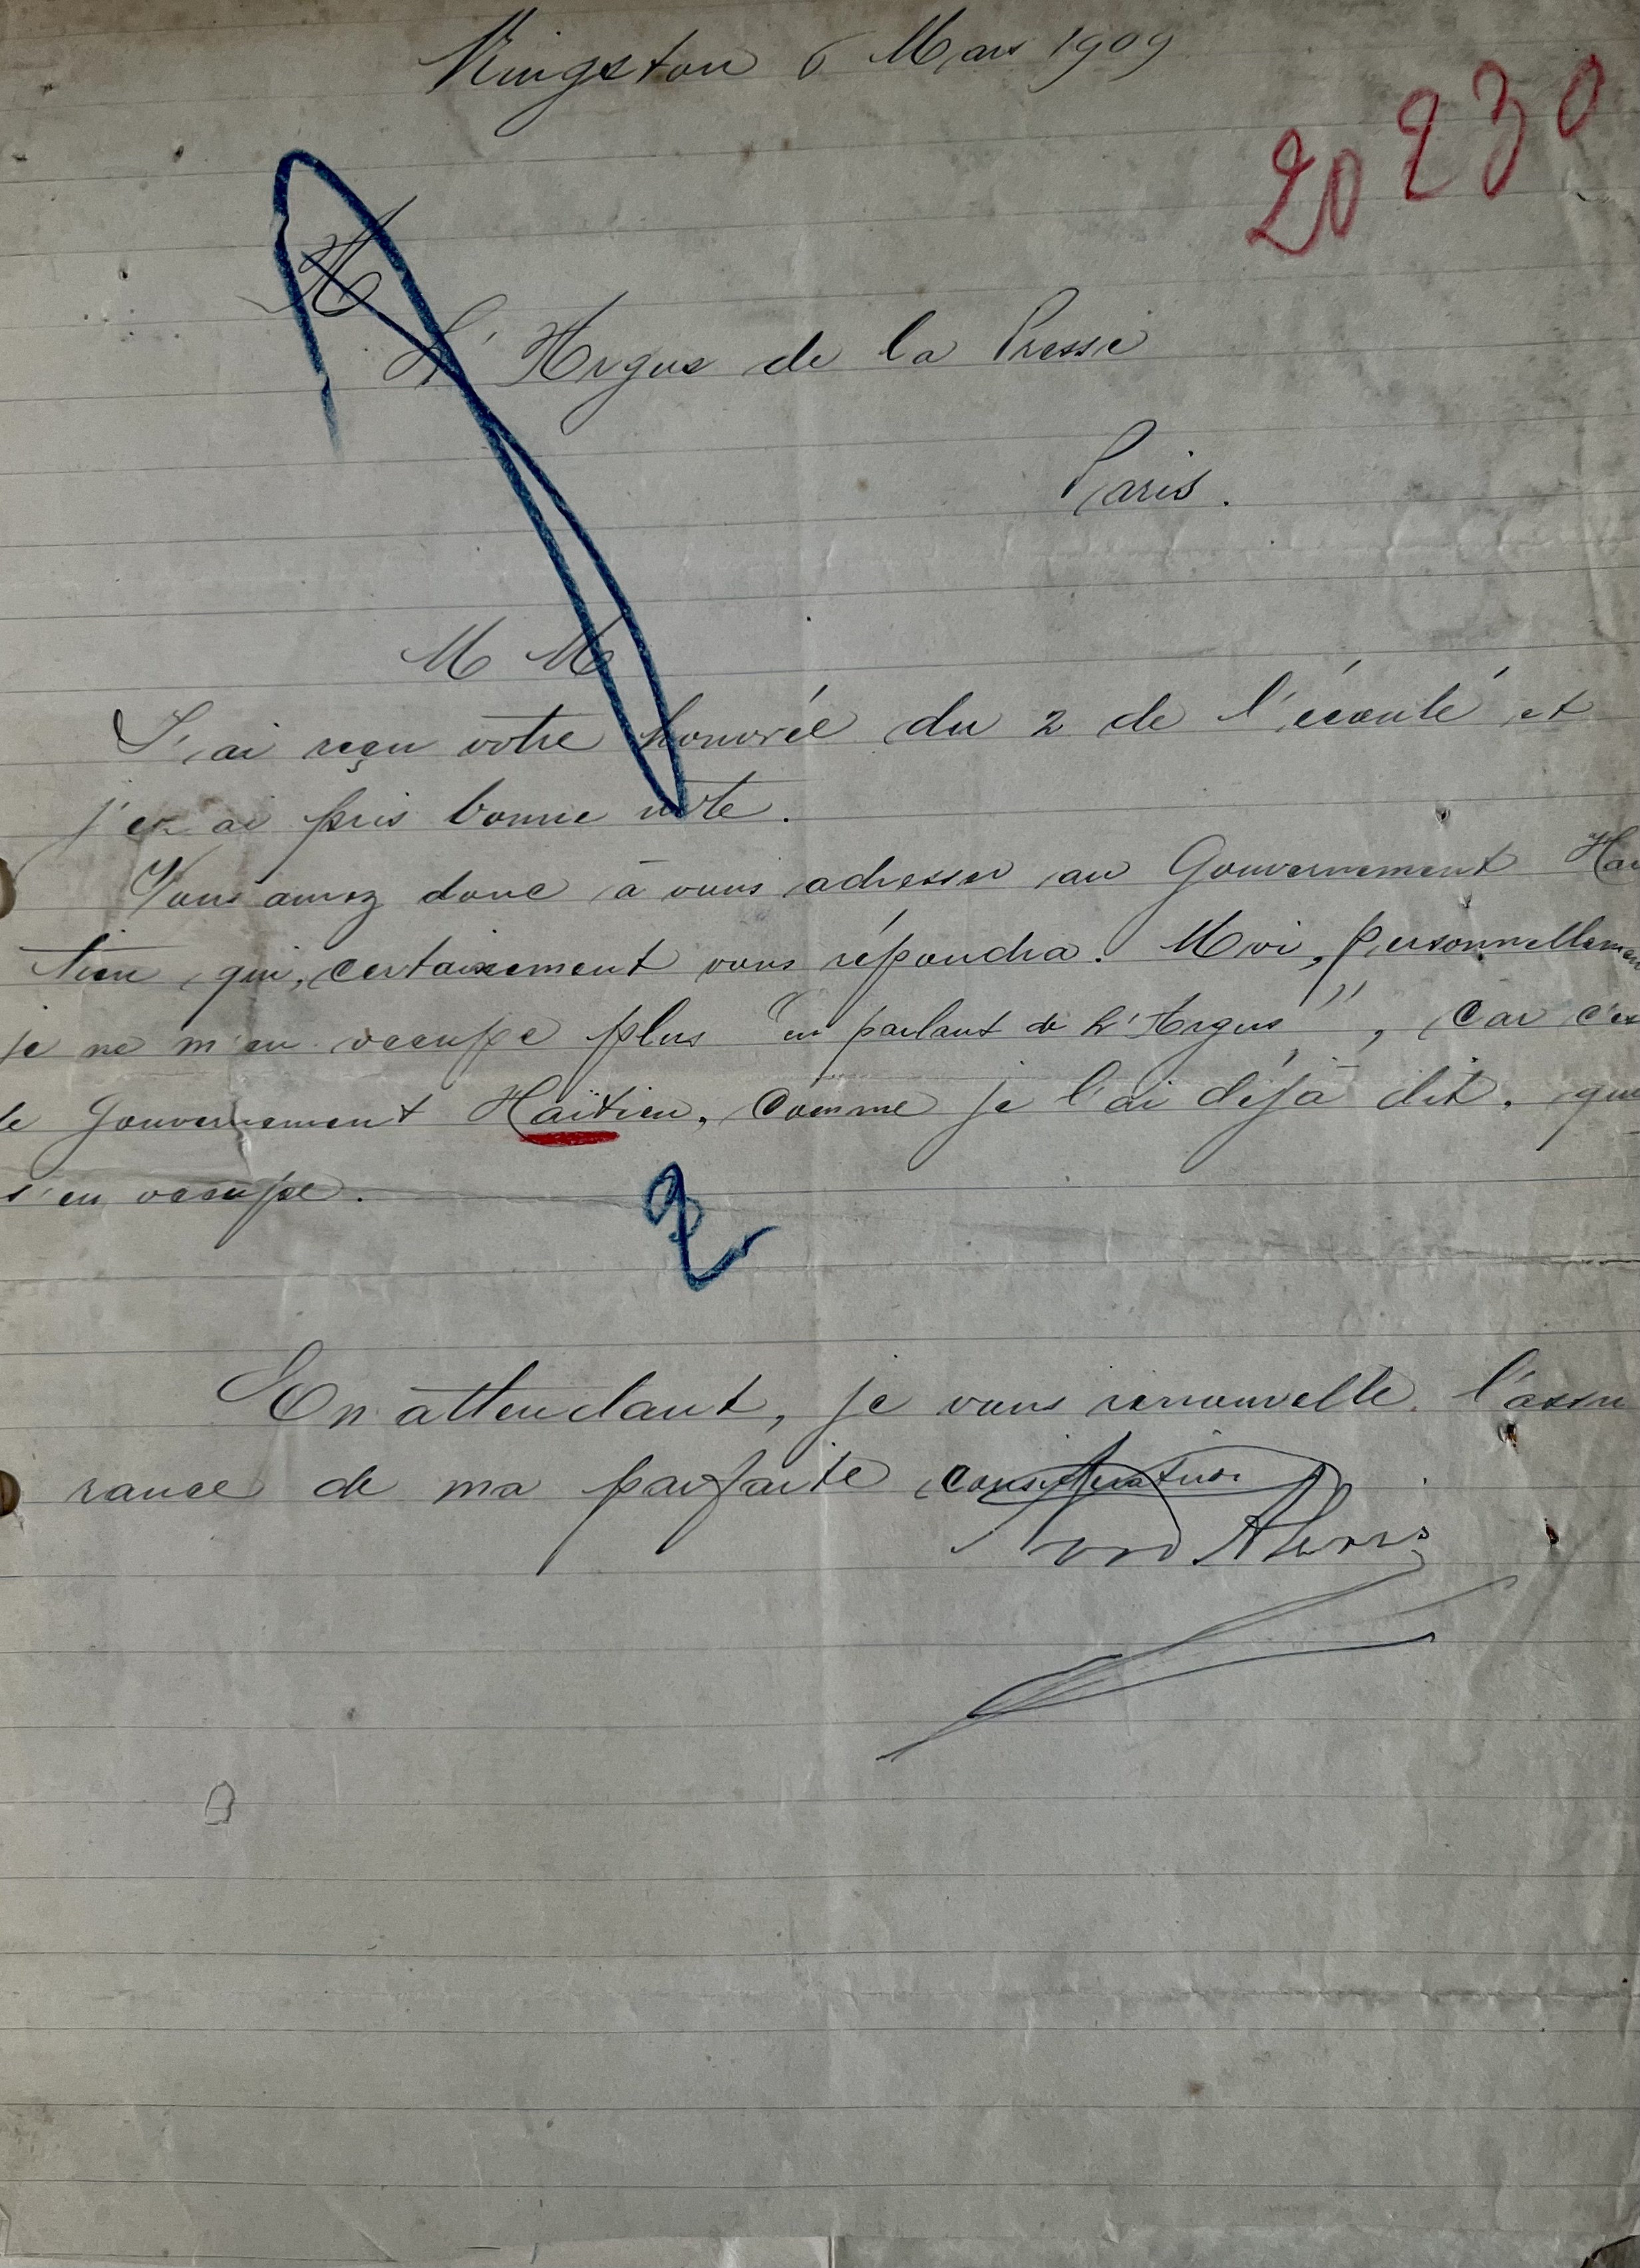 Kingston 6 Mars 1909
20230
L'Argus de la Presse
Paris.
M M
J'ai reçu votre honorée du 2 de l'écoulé et
j'en ai pris bonne note.
Vous aurez donc à vous adresser au Gouvernement Haï
tien qui, certainement vous répondra. Moi, personnellement
je ne m'en occupe plus "en parlant de L'Argus", car c'est
le Gouvernement Haïtien, comme je l'ai déjà dit, qui
s'en occupe.
2
En attendant, je vous renouvelle l'assu
rance de ma parfaite considération